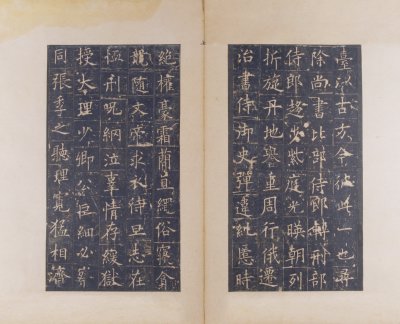 臺以古方今彼此一也尋
除尚書比部侍郎轉刑部
侍郎趍步紫庭光暎朝列
折旋丹地譽重周行俄遷
治書侍御史彈違糺慝時
絕權豪霜簡直繩俗寢貪
競隨文帝求衣待旦志在
恤刑呪網泣辜情存緩獄
授大理少卿公巨細必察
同張季之聽理寬猛相濟